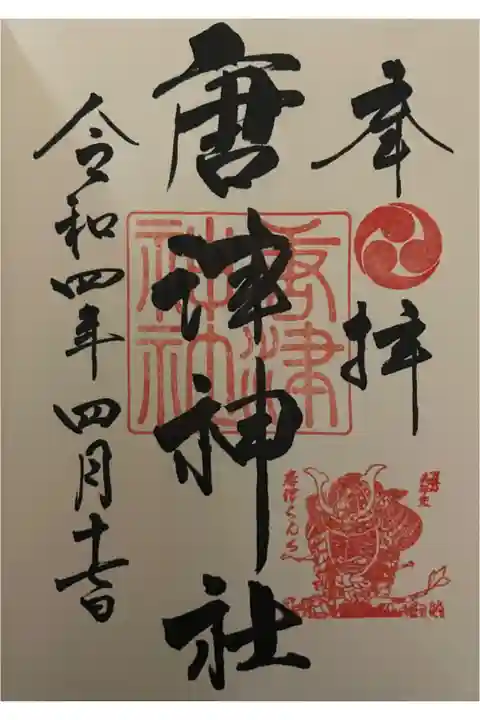 奉拝
唐津神社
唐津神社
唐津くんち
令和四年四月十七日